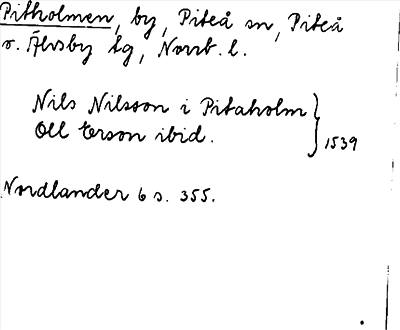 Pitholmen, by, Piteå sn, Piteå
o. Älvsby tg, Norrb. l.
Nils Nilsson i Pitaholm
Oll Erson ibid.
1539
Nordlander 6 s. 355.